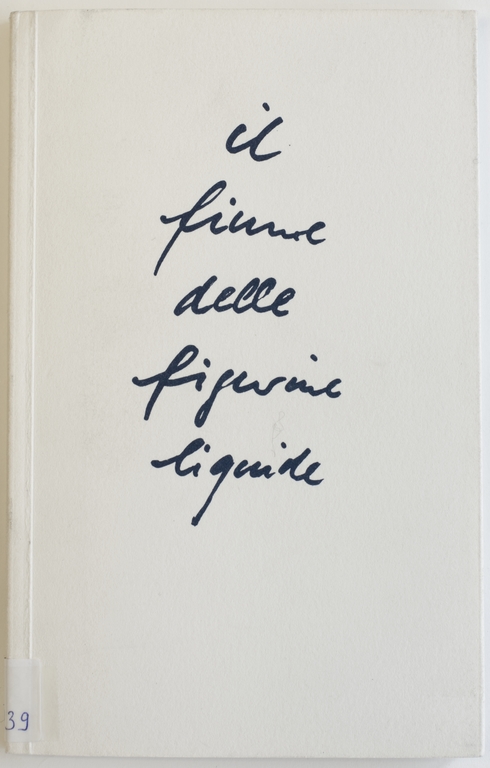 il
fiume
delle
figurine
liquide
39